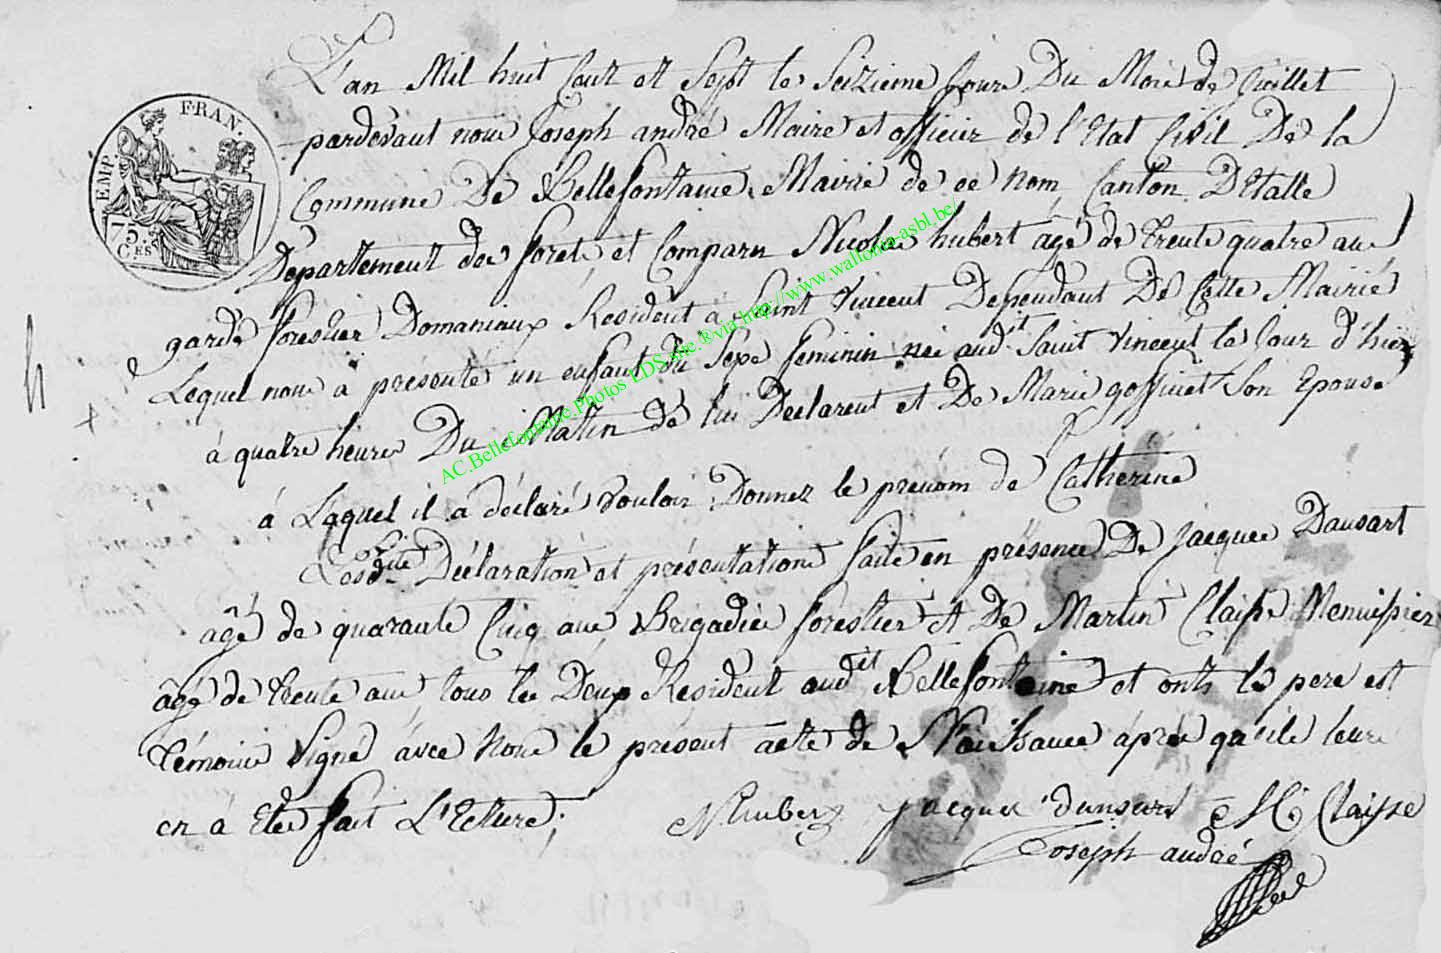 L'an Mil huit Cent et Sept le Seizieme Jour Du Mois de Juillet
pardevant nous Joseph andré Maire et officier de l'Etat Civil De la
Commune De Bellefontaine Mairie de ce nom Canton D'Etalle
Département des forets et Comparu Nicolas hubert agé de trente quatre ans
garde forestier Domaniaux Resident à Saint Vincent Dependant De Cette Mairie
Lequel nous a presenté un enfant du Sexe feminin né audit Saint Vincent le Jour d'hier
à quatre heures Du Matin de lui Declarent et De Marie goffinet Son Epouse
à Laquel il a déclaré Vouloir Donner le prénom de Catherine
Lesdite Déclaration et présentation faite en présence De Jacques Dausart
âgé de quarante Cinq ans Brigadié forestier et De Martin Claisse Menuissier
âgé de trente ans tous les Deux Resident audit Bellefontaine et onts le pere est
témoins Signé avec Nous le présent acte de Naissance après qu'ils leurs
en à Eté fait L'Ecture;
NHubert Jacque dunsart M Claisse
Joseph andré
EMP. FRAN.
75
Ces
h
AC.Bellefontaine.Photos LDS.site.®via.http://www.wallonia-asbl.be/